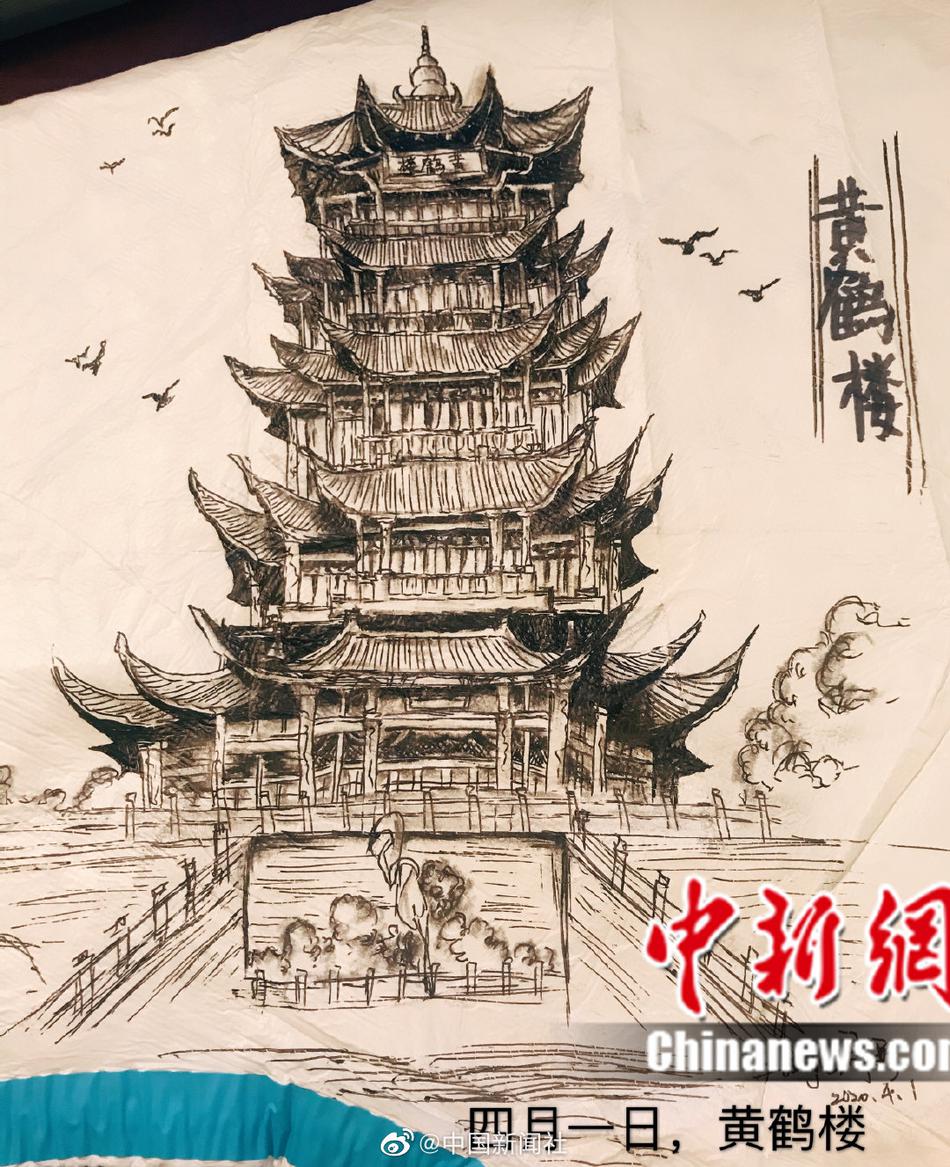 楼鹤黄
黄鹤楼
中新網
Chinanews.com
2020.4.1
四月一日，黄鹤楼
@中国新闻社